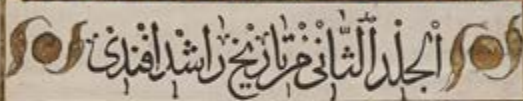 الجلد الثانى من تاريخ راشد افندى